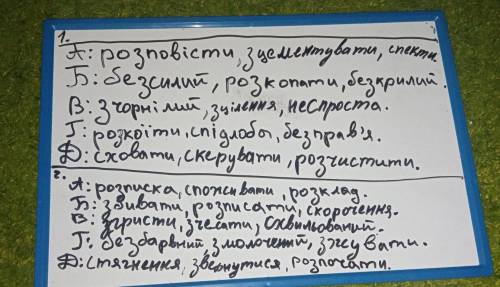 1.
А: розповісти, зцементувати, спекти.
Б: безсилий, розкопати, безкрилий.
В: зчорнілий, зцілення, неспроста.
Г: розкоїти, спідлоба, безправ'я.
Д: сховати, скерувати, розчистити.
2.
А: розписка, споживати, розклад.
Б: збивати, розписати, скорочення.
В: згристи, зчесати, схвильований.
Г: безбарвний, змолочений, зжувати.
Д: стягнення, звернутися, розпочати.